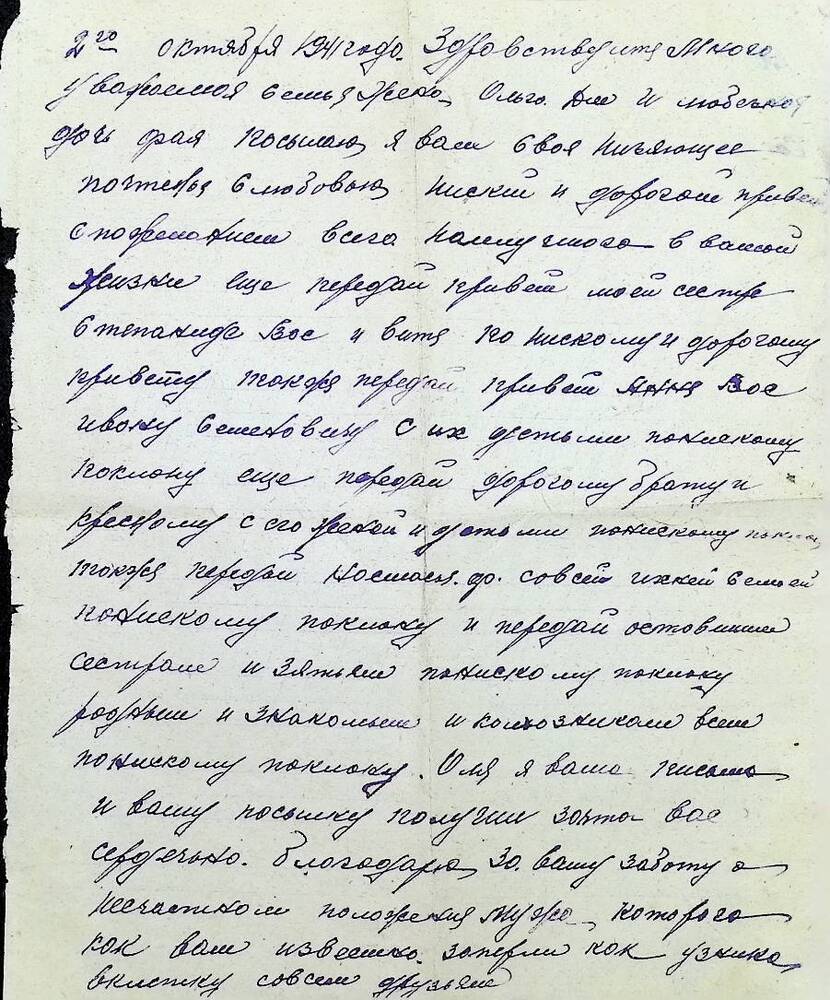 2го октября 1941 года. Здравствуитя Много
уважаемоя Семья Жена Ольга. Дм и любезная
дочь Фая посылаю я вам Своя ничяющее
почтенья Слюбовью ниский и дорогой привет
Спожеланием всего наилучшого в вашой
Жизни еще передай привет моей сестре
Степаниде Вос и Витя по нискому и дорогому
привету такожа передай привет Ання Вос
ивану Семеновичу с их детьми понискому
поклону еще передай дорогому брату и
крестному с его женой и детьми понискому поклону
такжа передай Настасья. до. совсей ихней Семьей
понискому поклону и передай остовшим
сестрам и зятьям понискому поклону
родным и знакомым и колхозникам всем
понискому поклону. Оля я ваше письмо
и вашу посылку получил зачто вас
сердечно. благодарю за. вашу заботу о
несчастном положения мужа, которого
как вам известно. заперли как узника
вклетку совсем друзьям